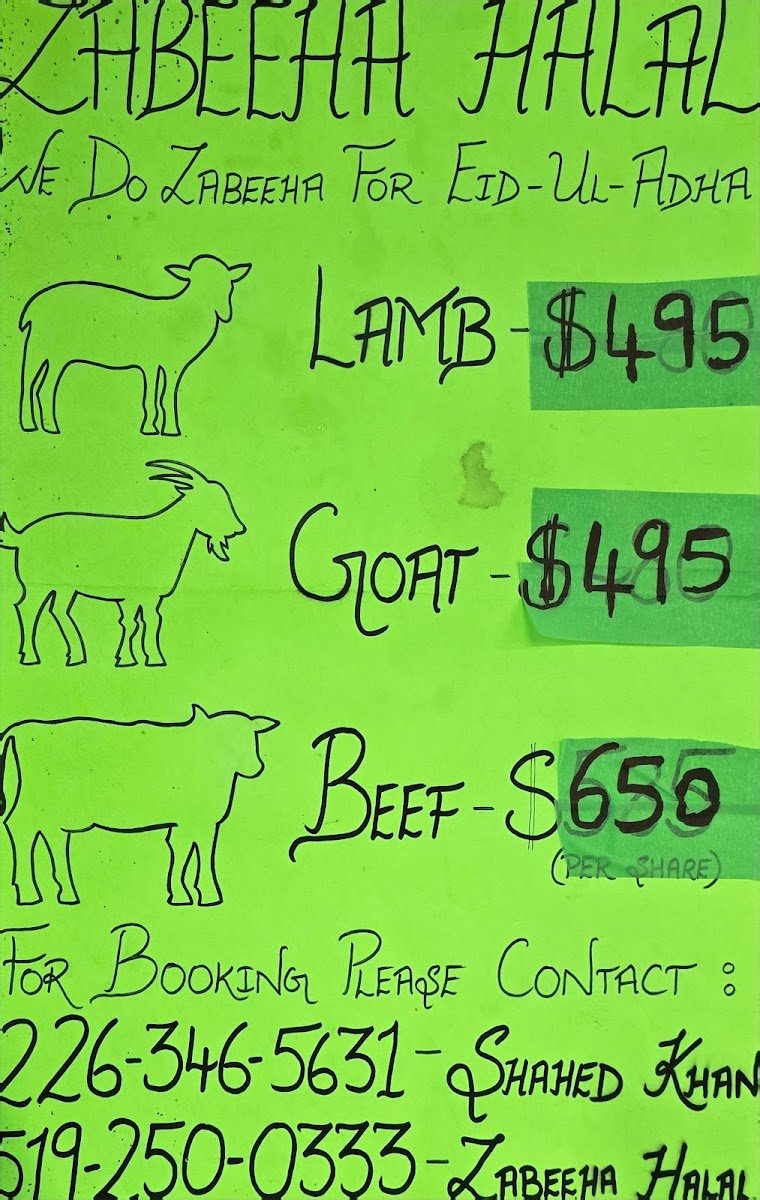 ZABEEHA HALAL
WE DO ZABEEHA FOR EID-UL-ADHA
LAMB - $495
GOAT - $495
BEEF - $650
(PER SHARE)
FOR BOOKING PLEASE CONTACT :
226-346-5631 - SHAHED KHAN
519-250-0333 - ZABEEHA HALAL